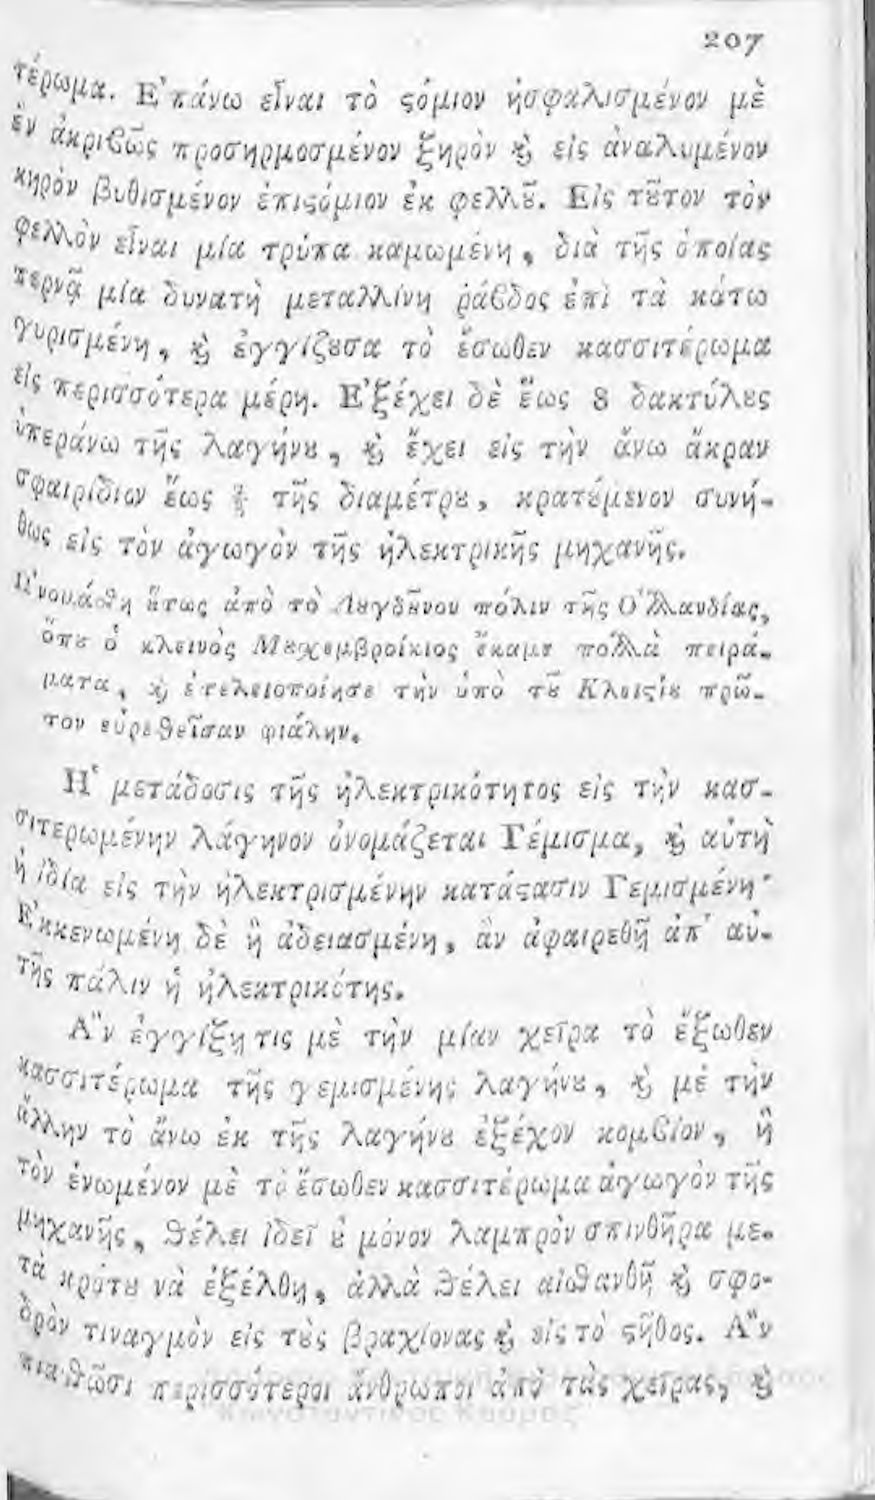 207
τέρωμα. Ε᾿πάνω εἶναι τὸ ϛόμιον ἠσφαλισμένον μὲ
ἐν ἀκριβῶς προσηρμοσμένον ξηρὸν ϗ εἰς ἀναλυμένον
κηρὸν βυθισμένον ἐπιϛόμιον ἐκ φελλȣ͂. Εἰς τȣ͂τον τὸν
φελλὸν εἶναι μία τρύπα καμωμένη, διὰ τῆς ὁποίας
περνᾷ μία δυνατὴ μεταλλίνη ῥάβδος ἐπὶ τὰ κάτω
γυρισμένη, ϗ ἐγγίζȣσα τὸ ἔσωθεν κασσιτέρωμα
εἰς περισσότερα μέρη. Ε᾿ξέχει δὲ ἕως 8 δακτύλȣς
ὑπεράνω τῆς λαγήνȣ, ϗ ἔχει εἰς τὴν ἄνω ἄκραν
σφαιρίδιον ἕως τῆς διαμέτρȣ, κρατȣ́μενον συνή-
θως εἰς τὸν ἀγωγὸν τῆς ἠλεκτρικῆς μηχανῆς.
Ω᾿νομάσθη ȣ̔́τως ἀπὸ τὸ Λȣγδȣ͂νον πόλιν τῆς Ο᾿λλανδίας,
ὅπȣ ὁ κλεινὸς Μȣχεμβροίκιος ἔκαμε πολλὰ πειρά-
ματα, ϗ ἐτελειοποίησε τὴν ὑπὸ τȣ͂ Κλειϛίȣ πρῶ-
τον εὑρεθεῖσαν φιάλην.
Η῾ μετάδοσις τῆς ἠλεκτρικότητος εἰς τὴν κασ-
σιτερωμένην λάγηνον ὀνομάζεται Γέμισμα, ϗ αὐτὴ
ἡ ἰδία εἰς τὴν ἠλεκτρισμένην κατάϛασιν Γεμισμένη·
Ε᾿κκενωμένη δὲ ἢ ἀδειασμένη, ἂν ἀφαιρεθῇ ἀπ᾿ αὐ-
τῆς πάλιν ἡ ἠλεκτρικότης.
Α῍ν ἐγγίξῃ τις μὲ τὴν μίαν χεῖρα τὸ ἔξωθεν
κασσιτέρωμα τῆς γεμισμένης λαγήνȣ, ϗ μὲ τὴν
ἄλλην τὸ ἄνω ἐκ τῆς λαγήνȣ ἐξέχον κομβίον, ἢ
τὸν ἑνωμένον μὲ τὸ ἔσωθεν κασσιτέρωμα ἀγωγὸν τῆς
μηχανῆς, θέλει ἰδεῖ ȣ̓ μόνον λαμπρὸν σπινθῆρα με-
τὰ κρότȣ νὰ ἐξέλθῃ, ἀλλὰ θέλει αἰσθανθῇ ϗ σφο-
δρὸν τιναγμὸν εἰς τȣ̀ς βραχίονας ϗ εἰς τὸ ϛῆθος. Α῍ν
πιασθῶσι περισσότεροι ἄνθρωποι ἀπὸ τὰς χεῖρας, ϗ
Κωνσταντίνος Καύρας